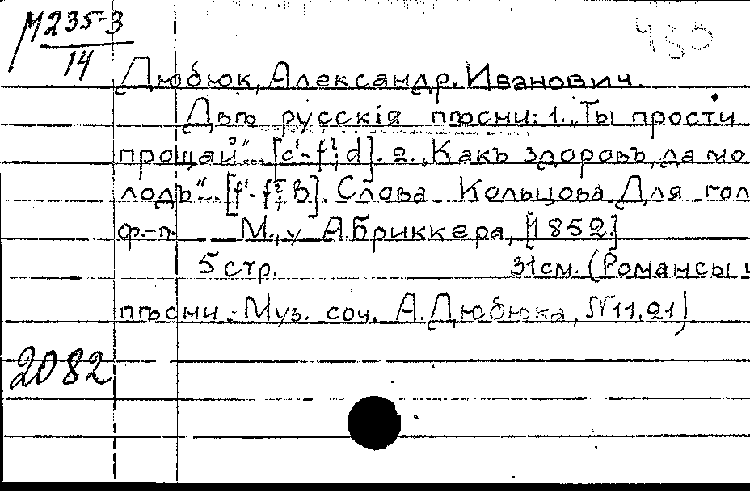 М235-3
14
Дюбюк, Александр Иванович.
Двѣ русскiя пѣсни: 1. „Ты прости
прощай"... [c¹-f²; d]. 2. „Какъ здоровъ, да мо
лодъ"... [f¹-f²; B]. Слова Кольцова Для гол
ф.-п. М., у А.Бриккера, [1852]
5 стр. 31 см. (Романсы и
пѣсни. Муз. соч. А.Дюбюка, N 11,21)
2082